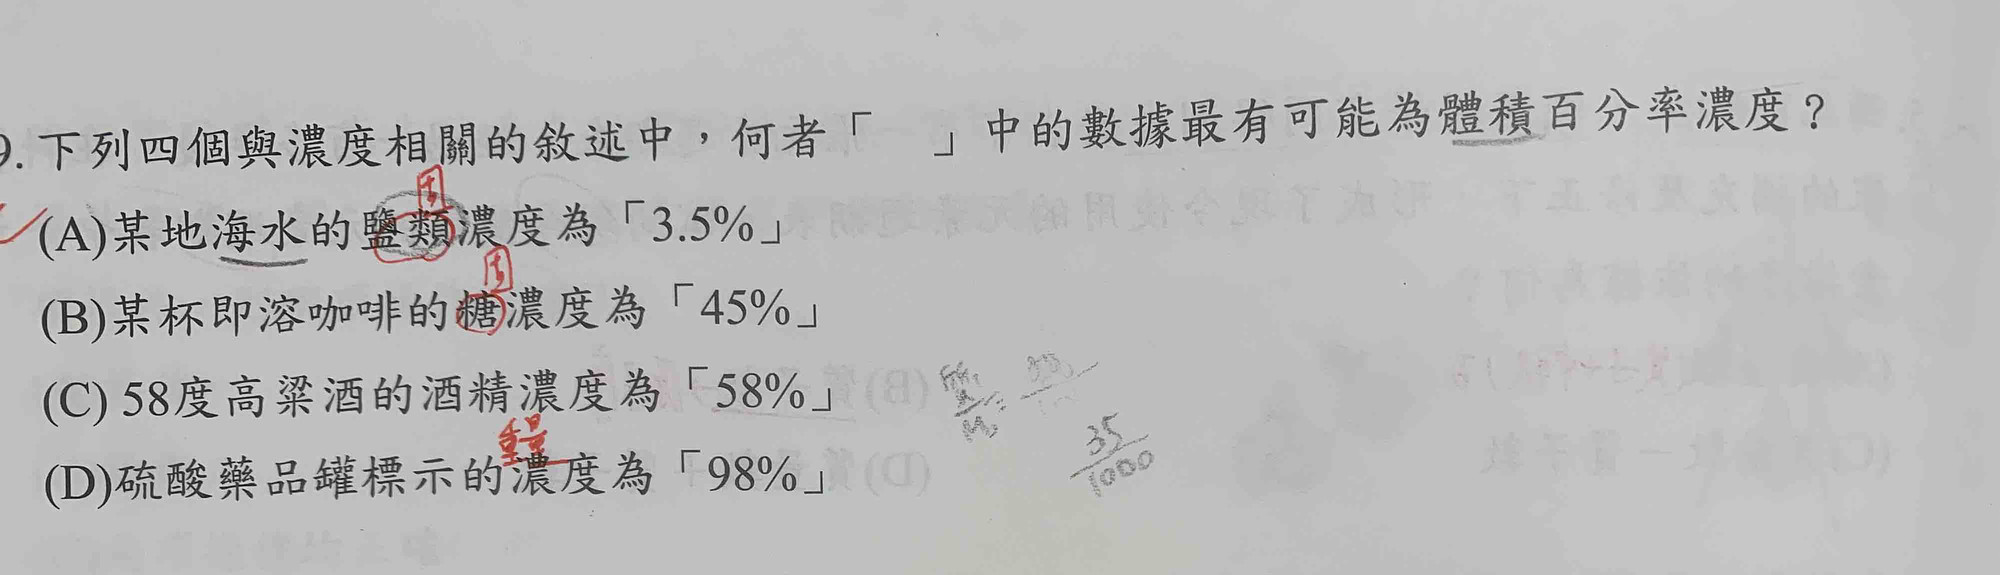 9.下列四個與濃度相關的敘述中，何者「　」中的數據最有可能為體積百分率濃度？
固
(A)某地海水的鹽類濃度為「3.5%」
固
(B)某杯即溶咖啡的糖濃度為「45%」
(C) 58度高粱酒的酒精濃度為「58%」
重量
35
1000
(D)硫酸藥品罐標示的濃度為「98%」